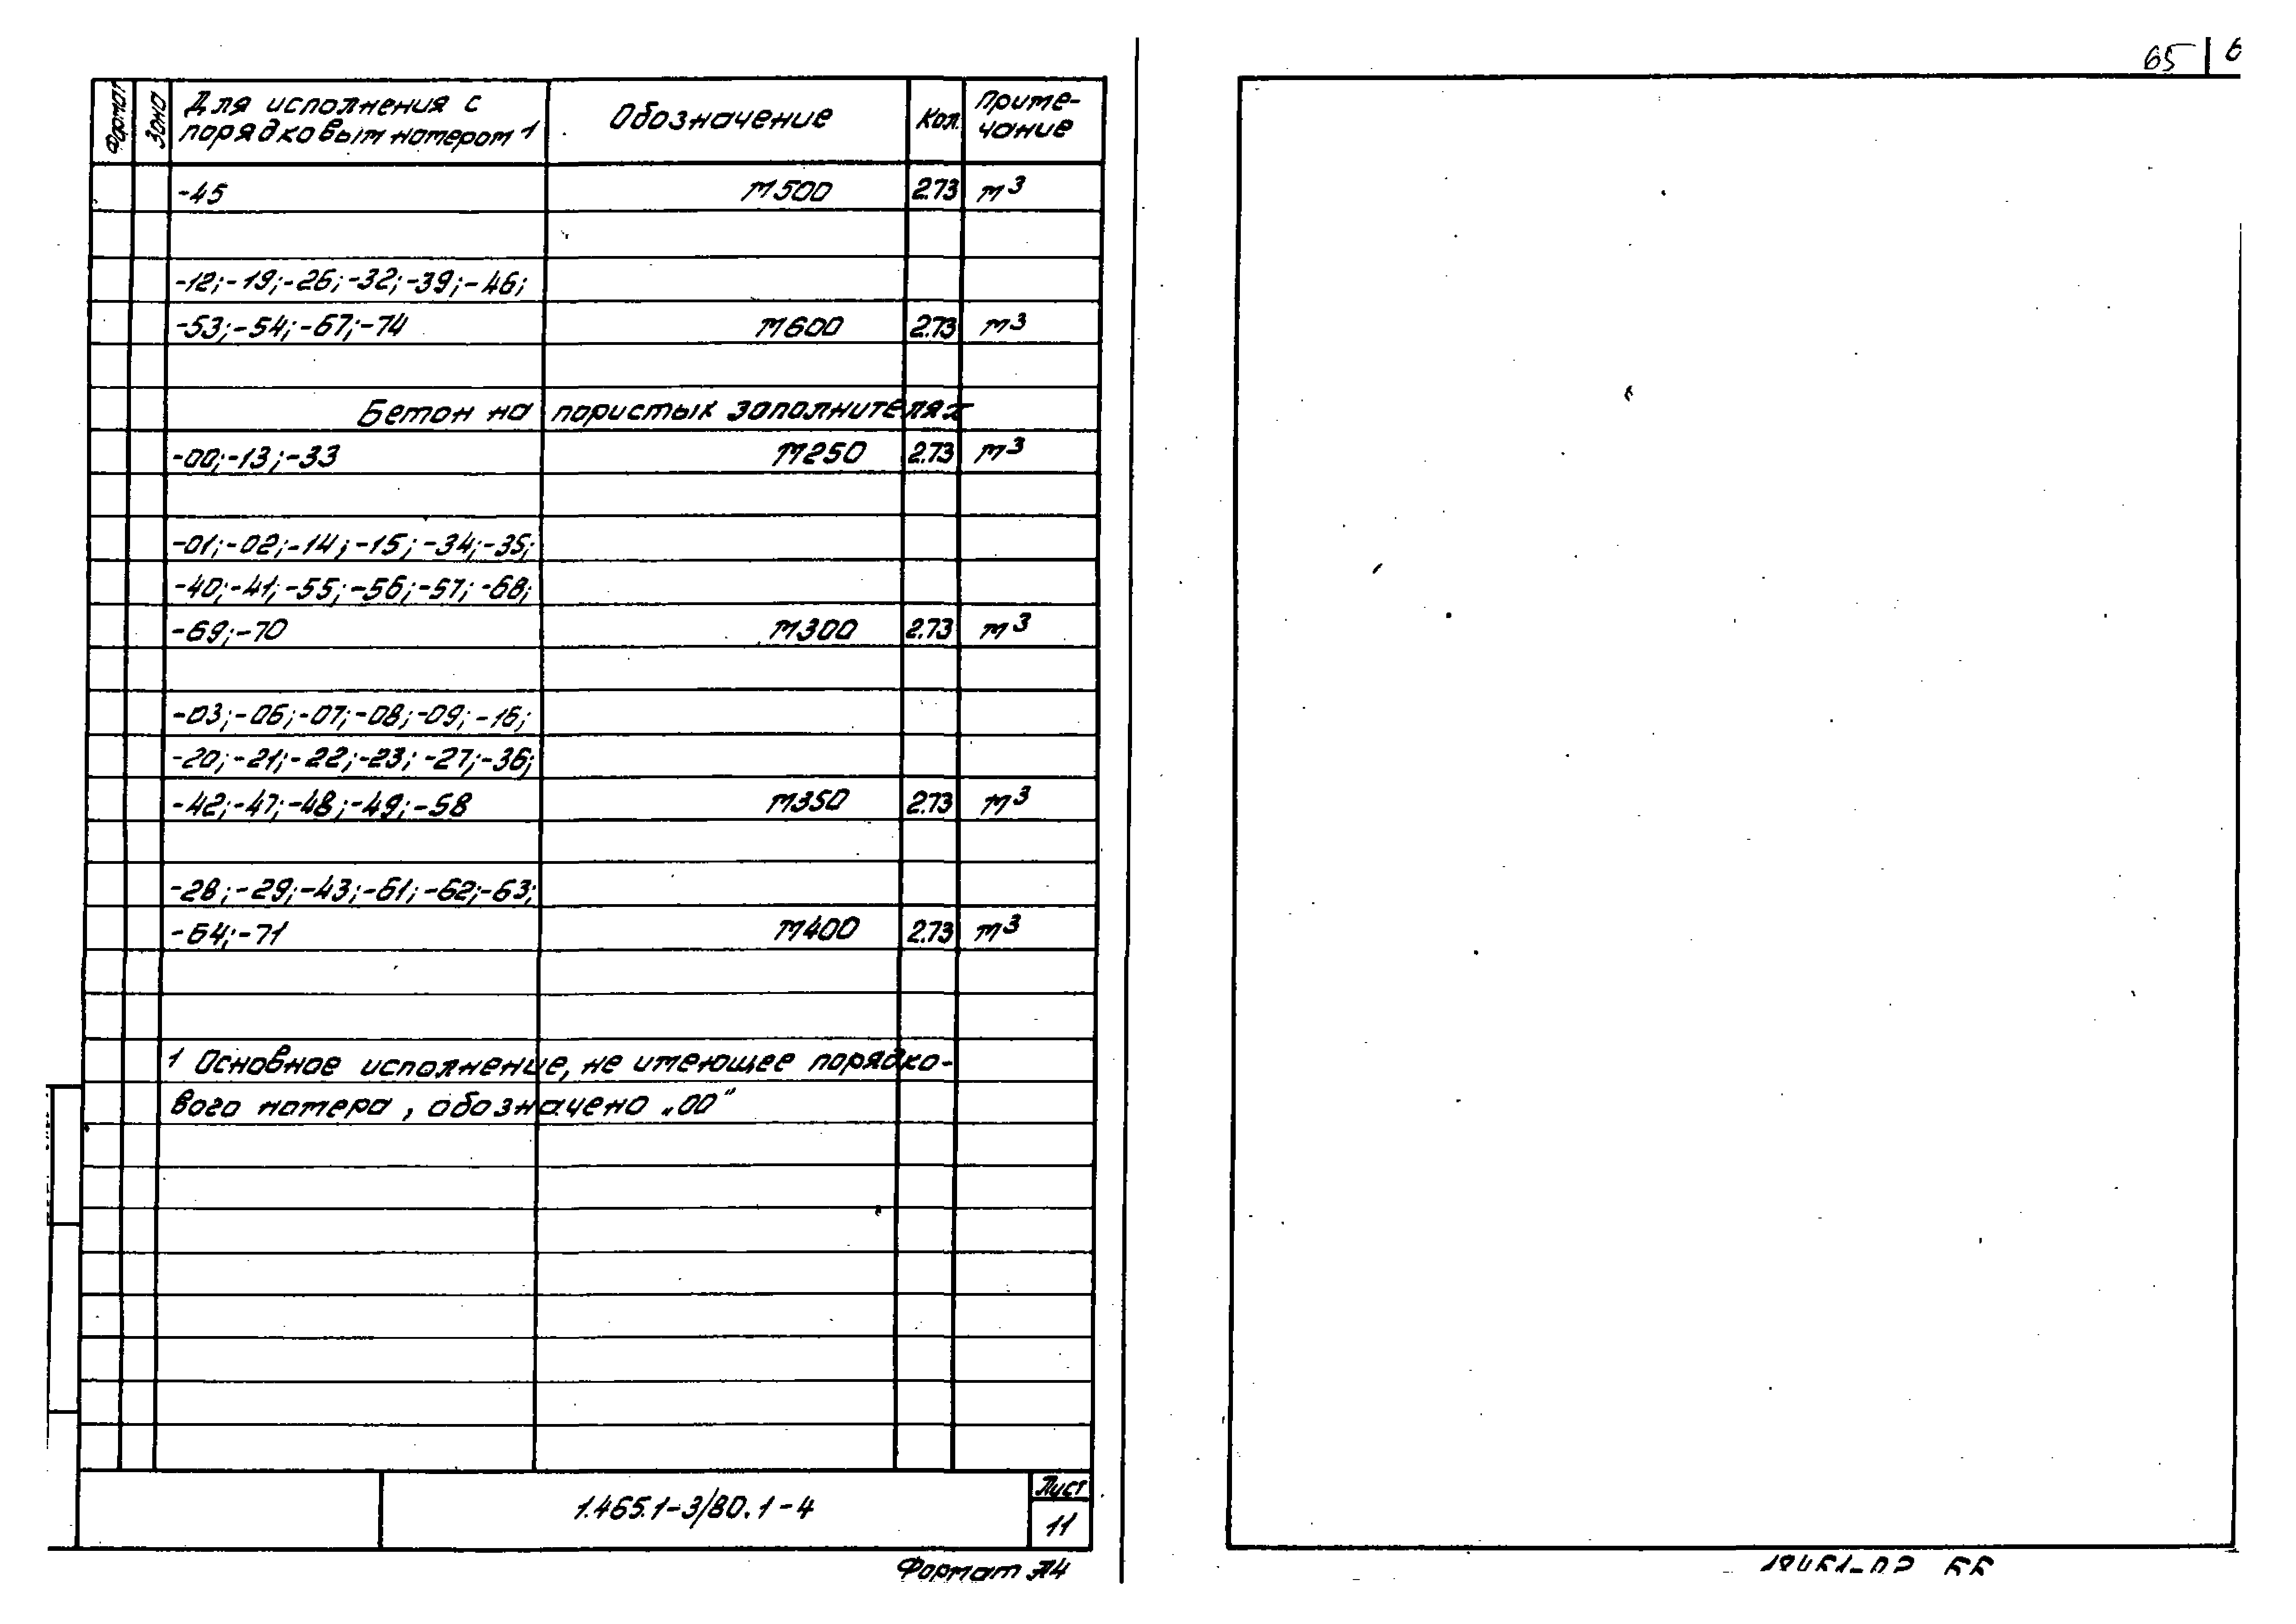 Формат Зона Для исполнения с порядковым номером 1 Обозначение Кол. Примечание
-45 М500 2.73 м³
-12;-19;-26;-32;-39;-46;
-53;-54;-67;-74 М600 2.73 м³
Бетон на пористых заполнителях
-00;-13;-33 М250 2.73 м³
-01;-02;-14;-15;-34;-35;
-40;-41;-55;-56;-57;-68;
-69;-70 М300 2.73 м³
-03;-06;-07;-08;-09;-16;
-20;-21;-22;-23;-27;-36;
-42;-47;-48;-49;-58 М350 2.73 м³
-28;-29;-43;-61;-62;-63;
-64;-71 М400 2.73 м³
1 Основное исполнение, не имеющее порядко-
вого номера, обозначено „00"
1.465.1-3/80.1-4
Лист
11
Формат А4
65